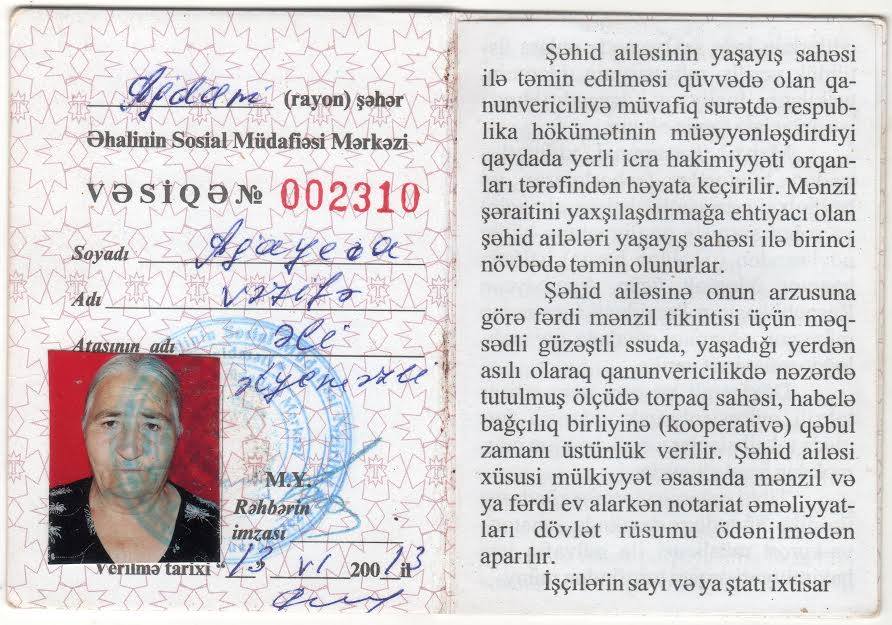 Ağdam (rayon) şəhər
Əhalinin Sosial Müdafiəsi Mərkəzi
VƏSİQƏ № 002310
Soyadı Ağayeva
Adı Vəzifə
Atasının adı Əli
M.Y.
Rəhbərin
imzası
Verilmə tarixi “13” VI 20013 il
Şəhid ailəsinin yaşayış sahəsi
ilə təmin edilməsi qüvvədə olan qa-
nunvericiliyə müvafiq surətdə respub-
lika hökümətinin müəyyənləşdirdiyi
qaydada yerli icra hakimiyyəti orqan-
ları tərəfindən həyata keçirilir. Mənzil
şəraitini yaxşılaşdırmağa ehtiyacı olan
şəhid ailələri yaşayış sahəsi ilə birinci
növbədə təmin olunurlar.
Şəhid ailəsinə onun arzusuna
görə fərdi mənzil tikintisi üçün məq-
sədli güzəştli ssuda, yaşadığı yerdən
asılı olaraq qanunvericilikdə nəzərdə
tutulmuş ölçüdə torpaq sahəsi, habelə
bağçılıq birliyinə (kooperativə) qəbul
zamanı üstünlük verilir. Şəhid ailəsi
xüsusi mülkiyyət əsasında mənzil və
ya fərdi ev alarkən notariat əməliyyat-
ları dövlət rüsumu ödənilmədən
aparılır.
İşçilərin sayı və ya ştatı ixtisar